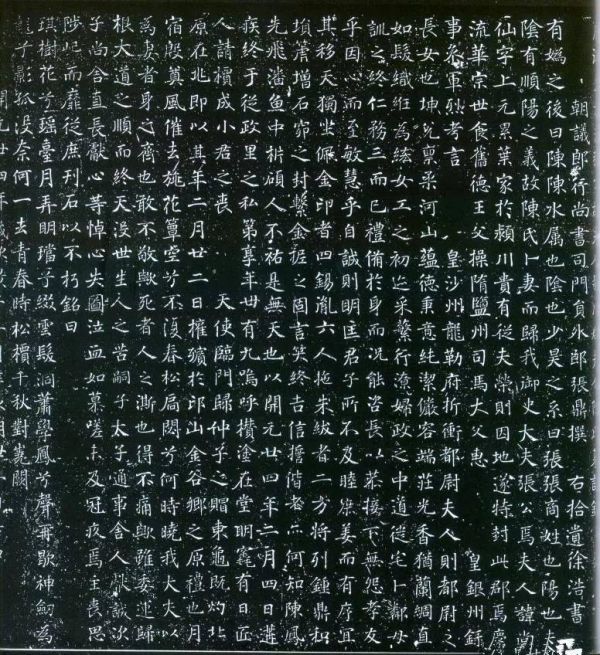 朝議郎行尚書司門員外郎張鼎撰 右拾遺徐浩書
有媯之後曰陳陳水属也陰也少昊之系曰張張商姓也陽也夫
陰有順陽之義故陳氏卜妻而歸我御史大夫張公焉夫人諱尚
仙字上元累葉家於潁川貴有從夫榮則因地遂特封此郡焉慶
流華宗世食舊德王父操隋鹽州司馬大父忠 皇銀州録
事參軍烈考言 皇沙州龍勒府折衝都尉夫人則都尉之
長女也坤兌禀柔河山蘊德秉意純潔儼容端莊光香猶蘭綢直
如髮織紝為絃女工之初也采蘩行潦婦政之中道從宅卜鄰母
訓之終仁務三而已禮備於身而況能咨長以恭接下無怨孝友
乎因心而至敏慧乎自誠則明匡君子所不及睦庶姜而有序宜
其移天獨坐佩金印者四錫胤六人拖朱紱者二方將列鍾鼎和
塤篪增石窌之封繫金柅之固言笑終吉信擔偕老云何知陳鳳
先飛潘魚中析碩人不祐是無天也以開元廿四年二月四日遘
疾終于從政里之私第享年卌有九嗚呼攢塗在堂明靈有日匠
人請槥成小君之喪 天使臨門歸仲子之賵東龜既灼北
原在兆即以其年二月廿二日權殯於邙山金谷鄉之原禮也月
宿殷奠風催去旐花蕈空兮不復春松扃閟兮何時曉我大夫以
為妻者身之齊也敢不敬歟死者人之澌也得不痛歟雖委運歸
根大道之順而終天沒世生人之苦嗣子太子通事舍人獻誠次
子尚舍直長獻心等悼心失圖泣血如慕嗟未及冠夜焉主喪思
陟屺而靡從庶刊石以不朽銘曰
琪樹花兮瑤臺月弄明璫兮綴雲髮洞簫學鳳兮聲再歇神劍為
龍兮影孤沒奈何一去青春時松檟千秋對蒿闕
開元廿四年歲次